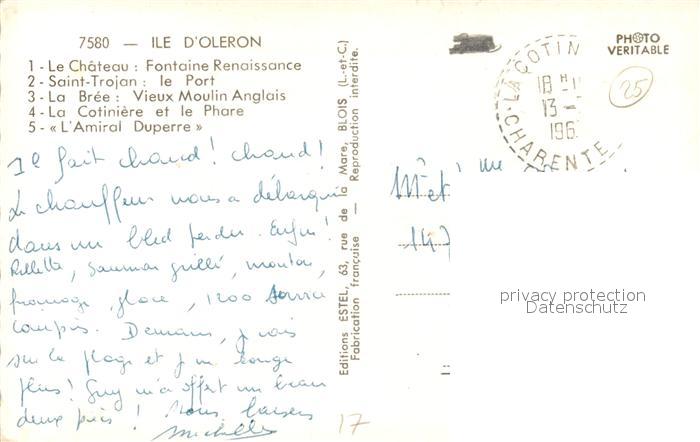 7580 — ILE D'OLERON
1 - Le Château : Fontaine Renaissance
2 - Saint-Trojan : le Port
3 - La Brée : Vieux Moulin Anglais
4 - La Cotinière et le Phare
5 - « L'Amiral Duperre »
Il fait chaud ! chaud !
Le chauffeur nous a débarqué
dans un bled perdu. Enfin !
Rillette, saumon grillé, mouton,
fromage, glace, 1200 service
compris. Demain, je vais
sur la plage et je ne bouge
plus ! Guy m'a offert un beau
deux pièces ! Nous baisers
Michelle
Editions ESTEL, 63, rue de la Mare, BLOIS (L.-et-C.)
Fabrication française — Reproduction interdite.
LA COTIN
18 H
13 -
196
CHARENTE
PHOTO
VERITABLE
25
Mr et Mme
147
privacy protection
Datenschutz
17